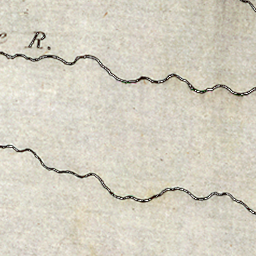 e R.